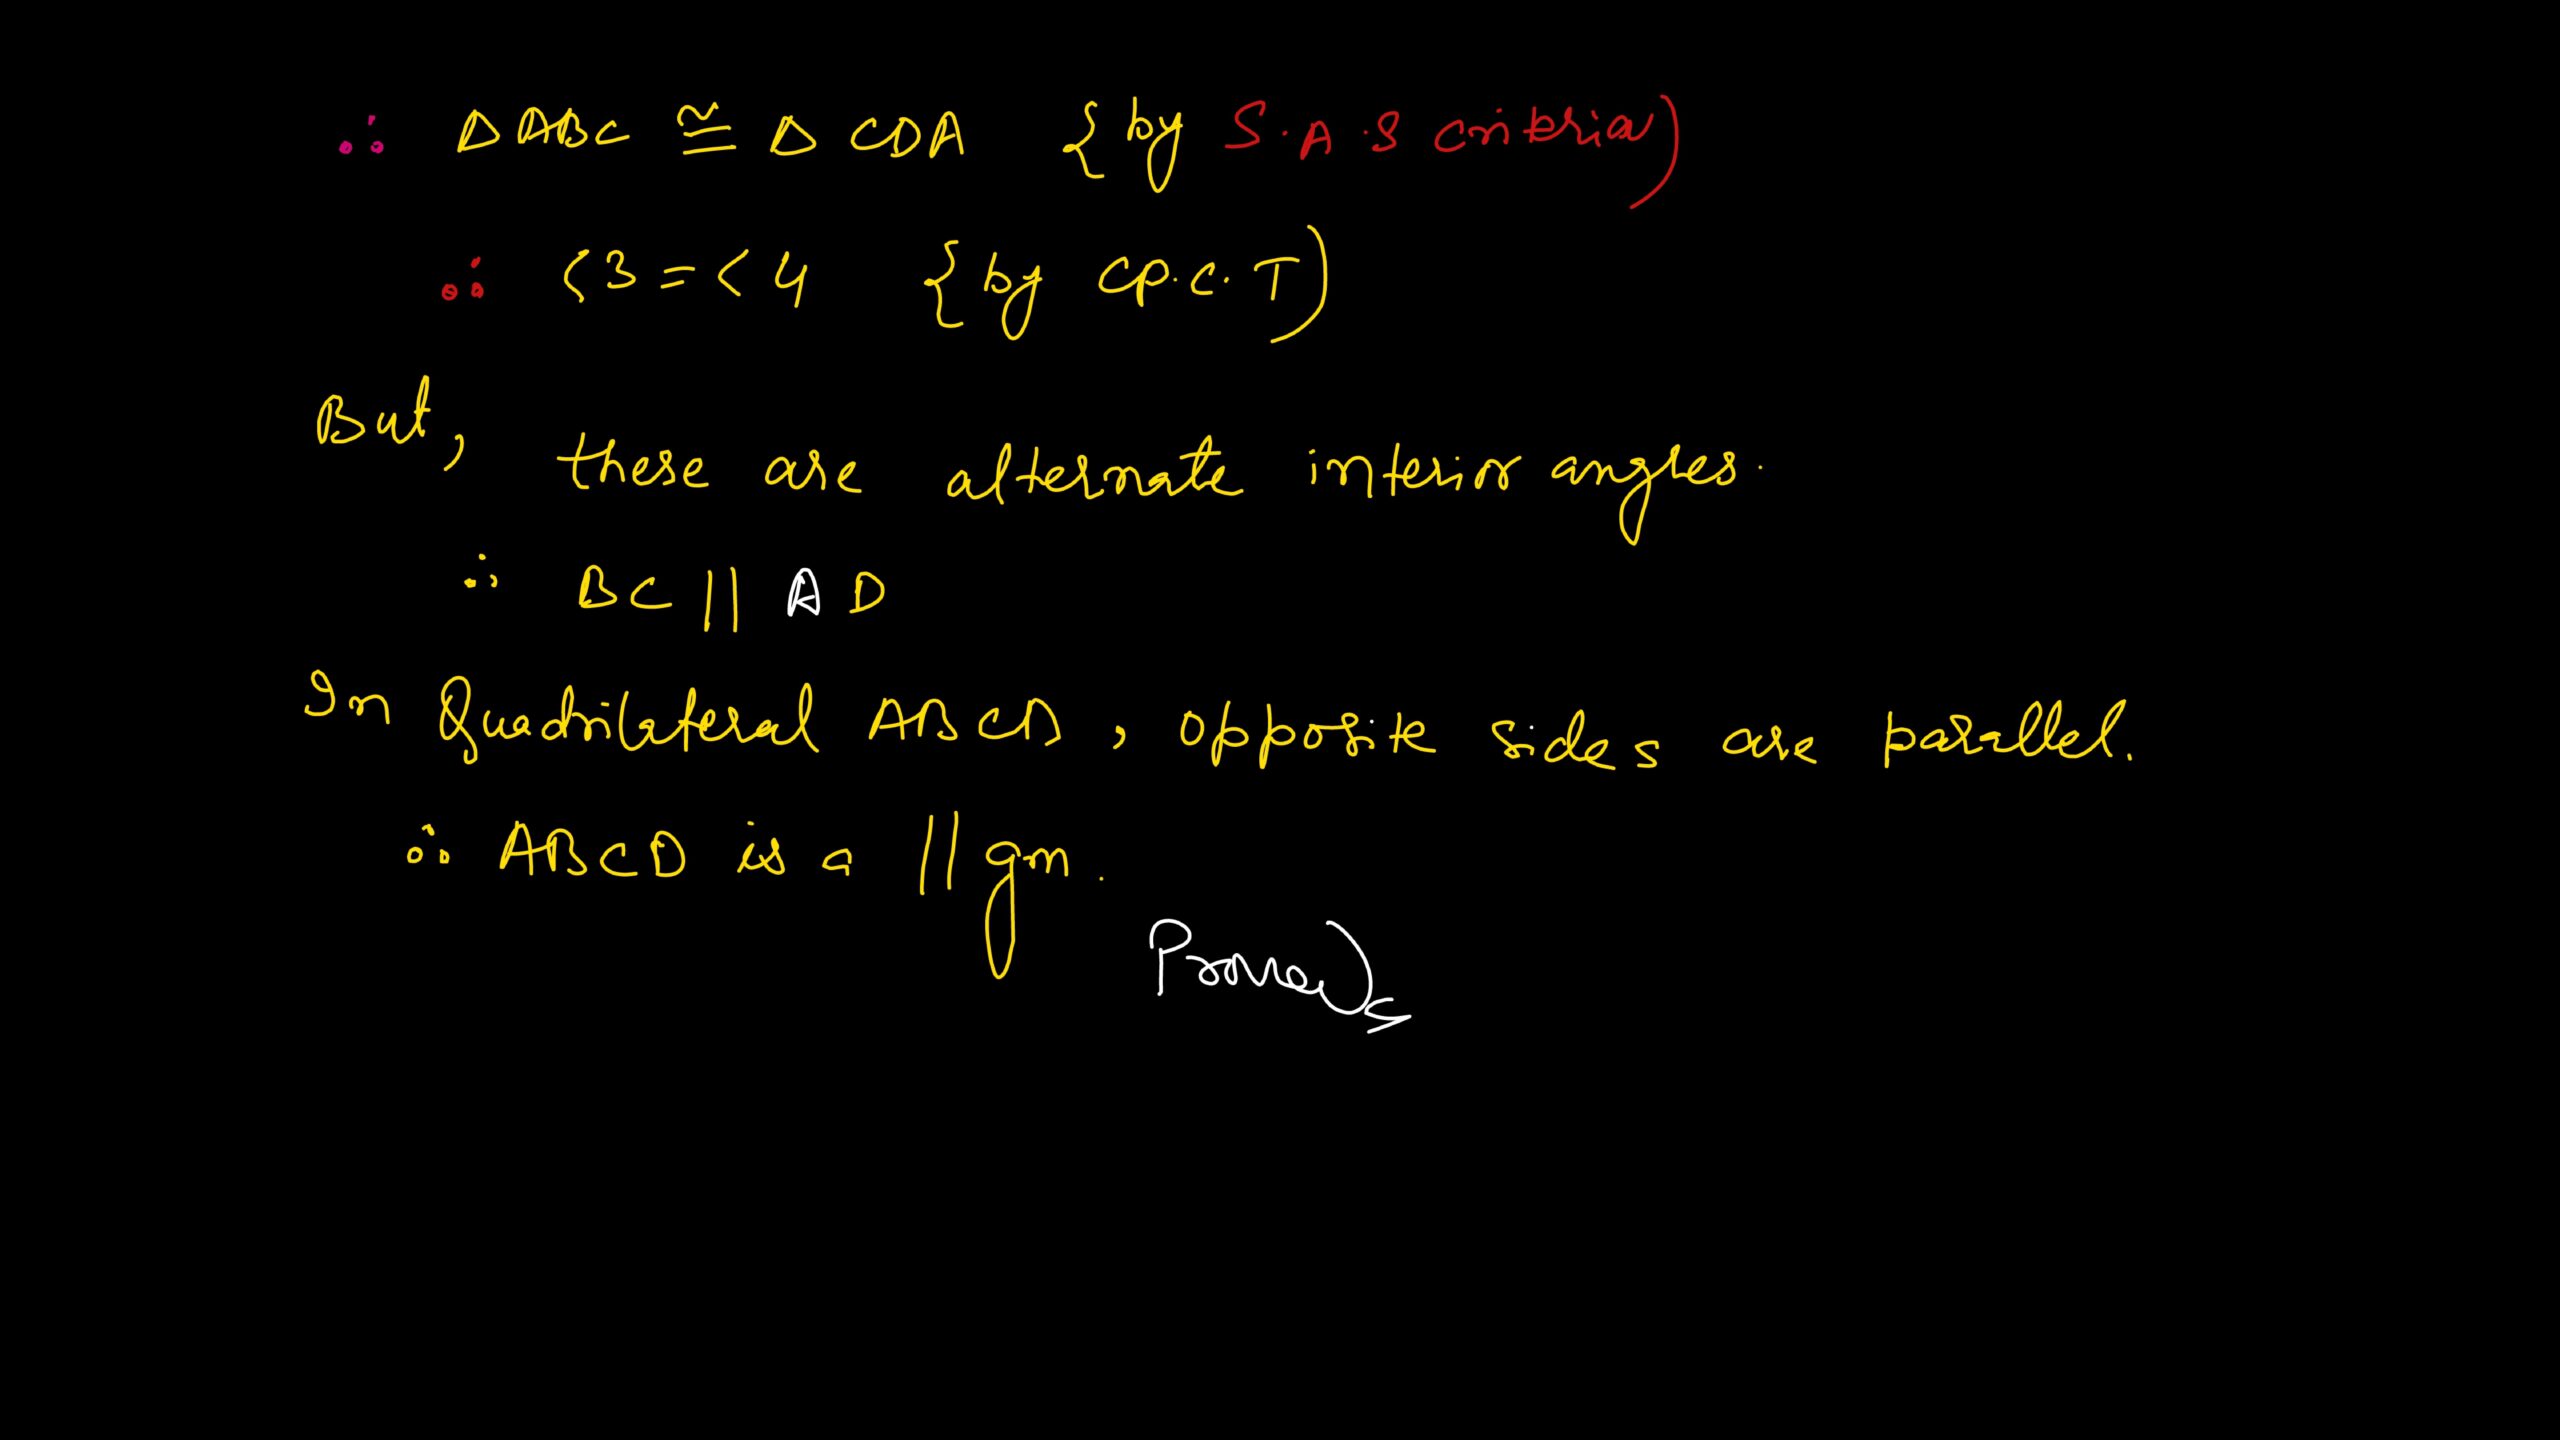 ∴ Δ ABC ≅ Δ CDA {by S.A.S criteria)
∴ <3 = <4 {by C.P.C.T)
But, these are alternate interior angles.
∴ BC || AD
In Quadrilateral ABCD, opposite sides are parallel.
∴ ABCD is a ||gm.
Proved